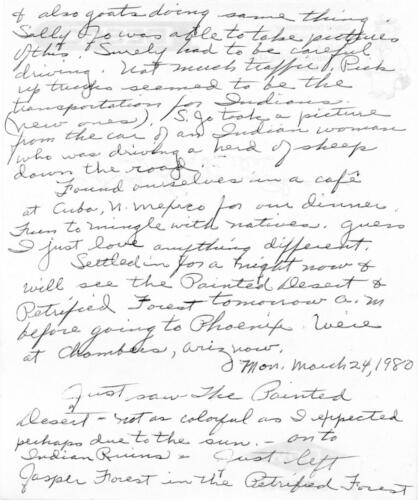 & also goats doing same thing.
Sally Jo was able to take pictures
of this. Surely had to be careful
driving. Not much traffic, Pick
up trucks seemed to be the
transportation for Indians.
(new ones). S. Jo took a picture
from the car of an Indian woman
who was driving a herd of sheep
down the road.
Found ourselves in a café
at Cuba, N. Mexico for our dinner.
Fun to mingle with natives. Guess
I just love anything different.
Settled in for a night now &
will see the Painted Desert &
Petrified Forest tomorrow a.m
before going to Phoenix. We're
at Chambers, Ariz now.
Mon. March 24, 1980
Just saw The Painted
Desert - not as colorful as I expected
perhaps due to the sun. - on to
Indian Ruins - Just left
Jasper Forest in the Petrified Forest